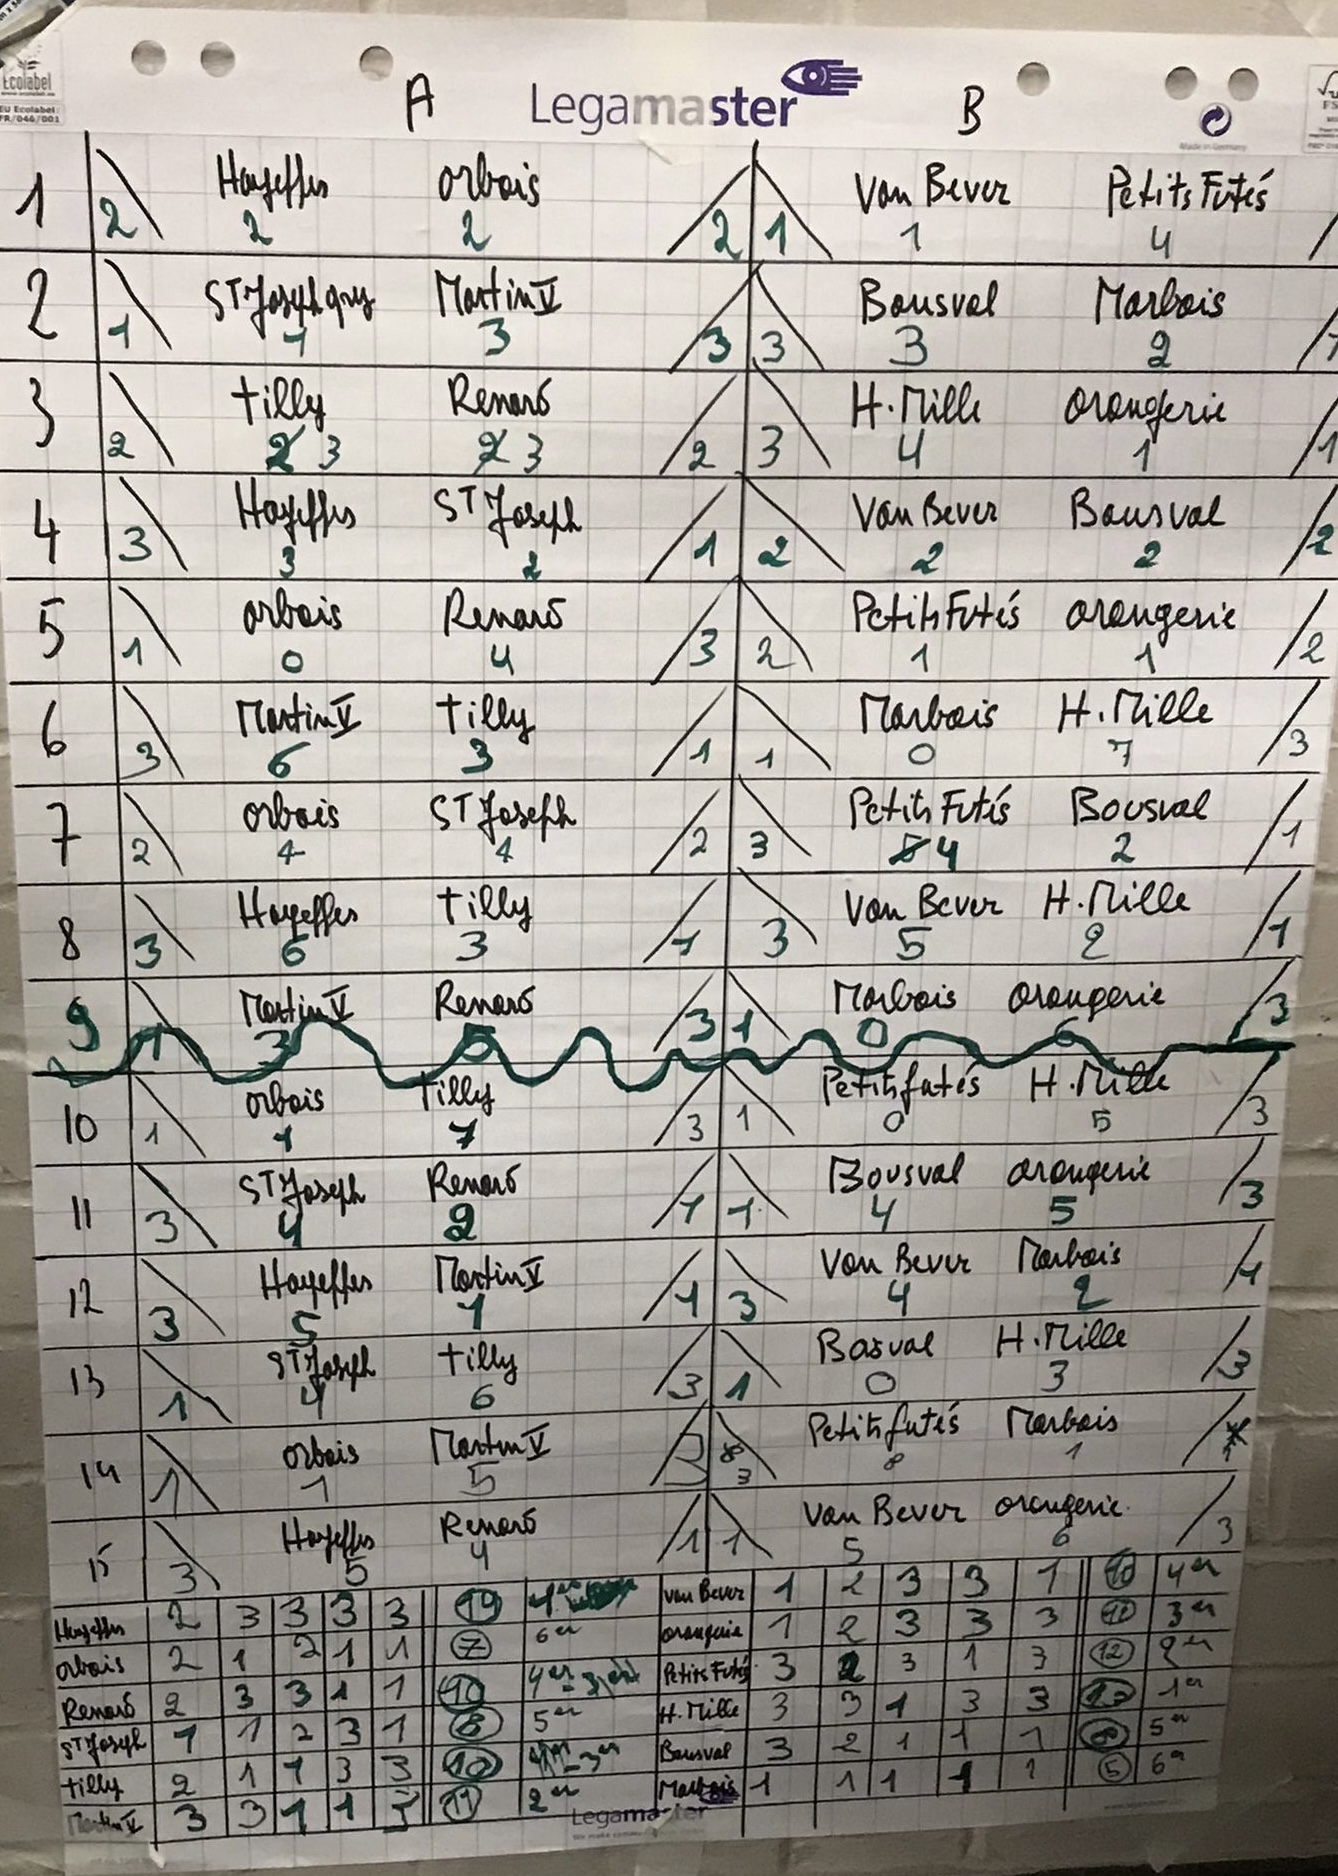 Ecolabel
EU Ecolabel:
FR/046/001
A Legamaster B
Made in Germany
1 2 Hayeffes 2 Orbais 2 2 1 Van Bever 1 Petits Futés 4
2 1 ST Joseph 1 Martin V 3 3 3 Bousval 3 Marbais 2 1
3 2 Tilly 3 Renard 3 2 3 H. Mille 4 orangerie 1 1
4 3 Hayeffes 3 ST Joseph 2 1 2 Van Bever 2 Bousval 2 2
5 1 orbais 0 Renard 4 3 2 Petits Futés 1 orangerie 1 2
6 3 Martin V 6 Tilly 3 1 1 Marbais 0 H. Mille 7 3
7 2 orbais 4 ST Joseph 4 2 3 Petits Futés 4 Bousval 2 1
8 3 Hayeffes 6 Tilly 3 1 3 Van Bever 5 H. Mille 2 1
9 1 Martin V 3 Renard 5 3 1 Marbais 0 orangerie 6 3
10 1 orbais 1 Tilly 7 3 1 Petits futés 0 H. Mille 5 3
11 3 ST Joseph 4 Renard 2 1 1 Bousval 4 orangerie 5 3
12 3 Hayeffes 5 Martin V 1 1 3 Van Bever 4 Marbais 2 1
13 1 ST Joseph 4 Tilly 6 3 1 Bosval 0 H. Mille 3 3
14 1 orbais 1 Martin V 5 3 3 Petits futés 8 Marbais 1 1
15 3 Hayeffes 5 Renard 4 1 1 Van Bever 5 orangerie 6 3
Hayeffes 2 3 3 3 3 1er Van Bever 1 2 3 3 1 10 4er
orbais 2 1 2 1 1 7 6er orangerie 1 2 3 3 3 3er
Renard 2 3 3 1 1 10 Petits Futés 3 2 3 1 3 12 2er
ST Joseph 1 1 2 3 1 8 5er H. Mille 3 3 1 3 3 13 1er
Tilly 2 1 1 3 3 10 3er Bousval 3 2 1 1 1 8 5er
Martin V 3 3 1 1 3 11 2er Marbais 1 1 1 1 1 5 6er
Legamaster